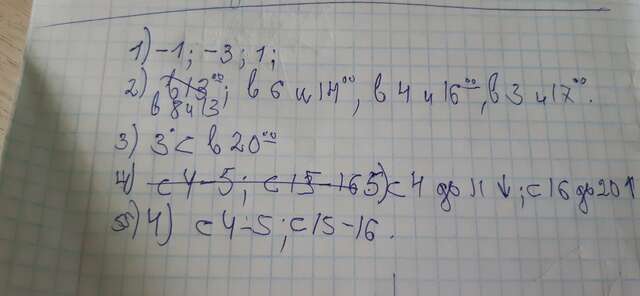 1) -1; -3; 1;
2) в 13⁰⁰; в 6 и 14⁰⁰, в 4 и 16⁰⁰, в 3 и 17⁰⁰.
в 8 и 13
3) 3°C в 20⁰⁰
4) с 4-5; с 15-16 5) с 4 до 11 ↓; с 16 до 20↑
5) 4) с 4-5; с 15-16.